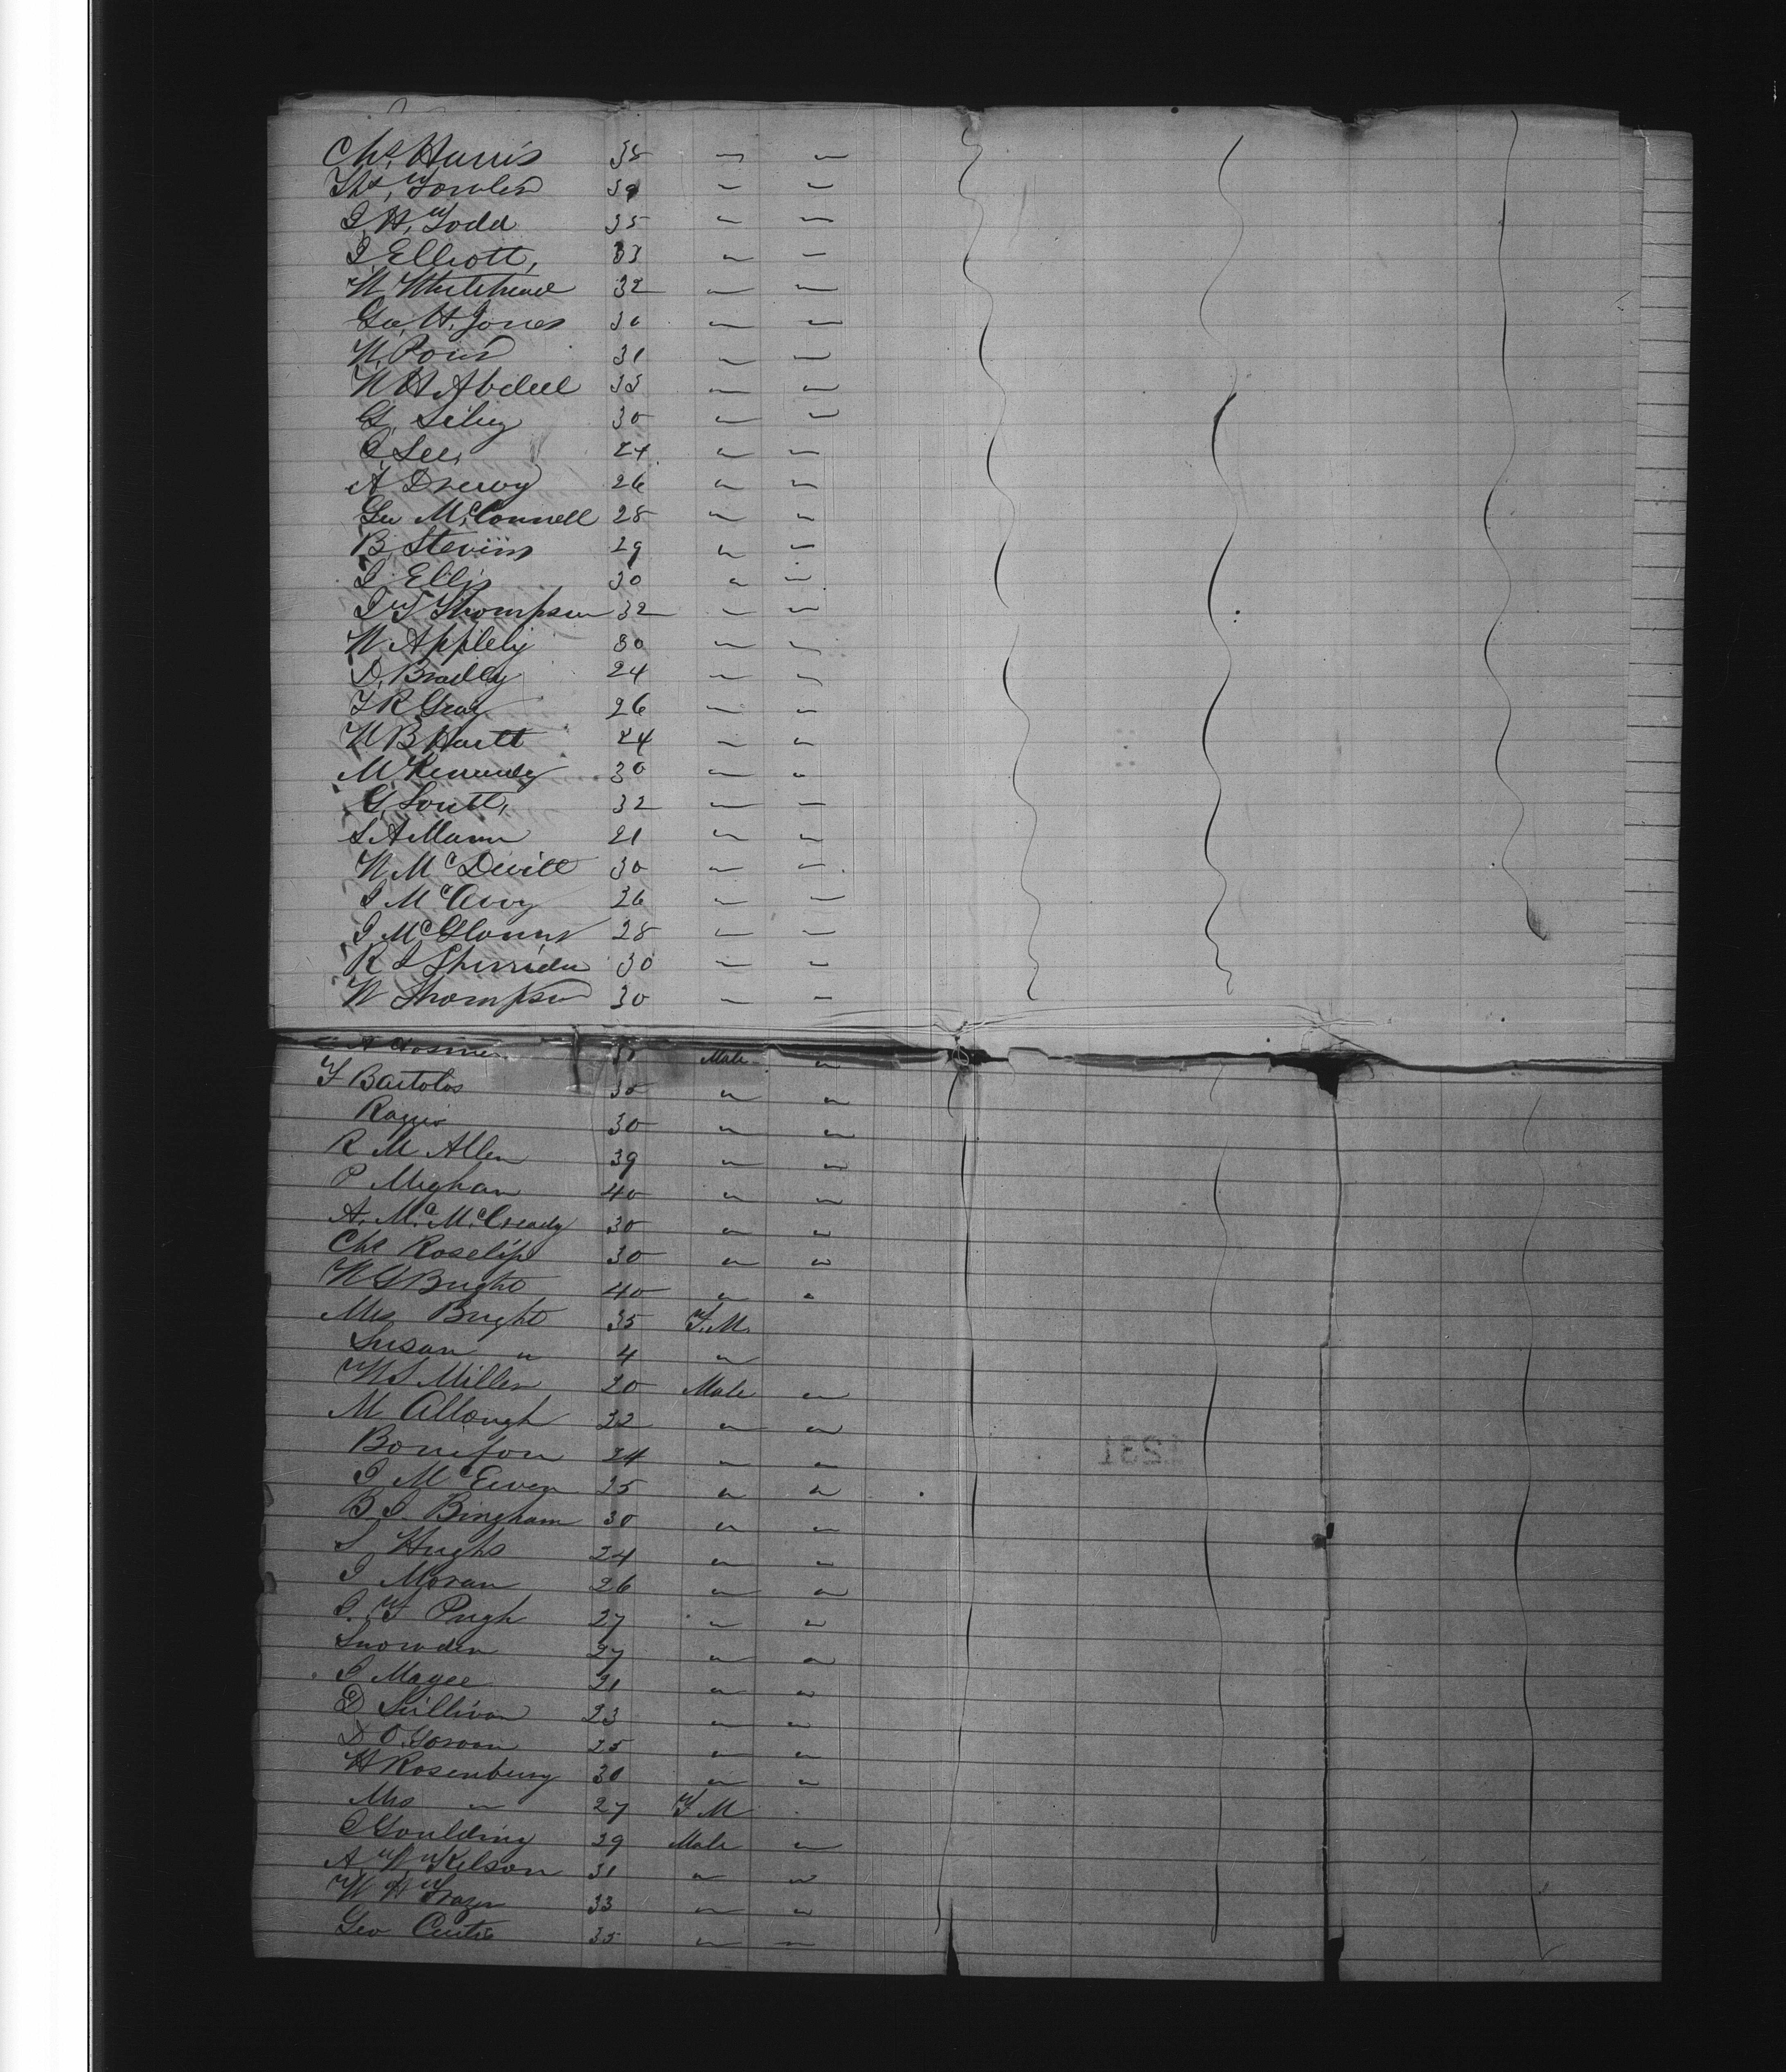 Chs, Harris 35 " "
Ths, Fowler 39 " "
J, H, Todd 35 " "
J Elliott, 33 " "
W Whitehead 32 " "
Geo, H. Jones 30 " "
W. 31 " "
W H Abdell 35 " "
G, 30 " "
C, Lee, 24 " "
A Drewry 26 " "
Geo McConnell 28 " "
B, Stevins 29 " "
J Ellis 30 " "
J F Thompson 32 " "
W Appleby 30 " "
D, Bradley 24 " "
F R Gray 26 " "
W B Hartt 24 " "
M Kennedy 30 " "
G, 32 " "
S A Mann 21 " "
W McDevitt 30 " "
J McAvoy 26 " "
J 28 " "
R J Sherriden 30 " "
W Thompson 30 " "
Male "
F Bartolos 30 " "
30 " "
R M Allen 39 " "
P Mighan 40 " "
A. Mc. McCready 30 " "
Chs Roselip 30 " "
W G Bright 40 " "
Mrs Bright 35 F. M.
Susan " 4 "
W S Miller 20 Male "
M 22 " "
24 " "
J McEwen 25 " "
B J. Bingham 30 " "
S, Hughs 24 " "
J Moran 26 " "
J. F Pugh 27 " "
Snowden 27 " "
J Magee 21 " "
D Sullivan 23 " "
D O. 25 " "
H Rosenburg 30 " "
Mrs " 27 F M
C Goulding 29 Male "
A, W, 31 " "
W H 33 " "
Geo Curtis 35 " "
1231